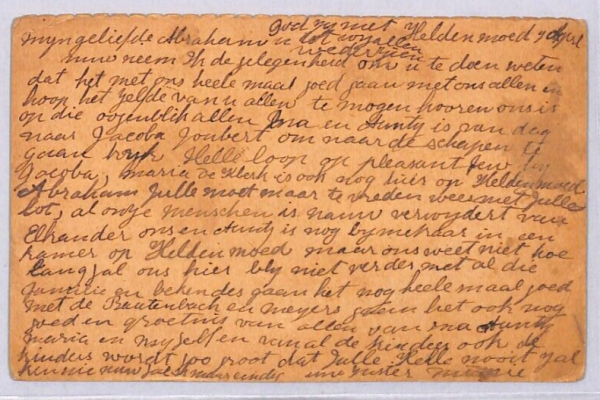 god zy met u
tot wy allen
wederzien
Heldenmoed 9 April
myn geliefde Abraham
nuw neem Ik de gelegenheid om u te doen weten
dat het met ons heele maal goed gaan met ons allen en
hoop het zelde van u allen te mogen hooren ons is
op die oogenblik allen Ina en Aunty is van dag
naar Jacoba Joubert om naar de schapen te
gaan kyk Helle loop op pleasant View by
Jacoba, maria de klerk is ook nog tuis op Heldenmoed
Abraham Julle moet maar te vreden wees met Julle
lot, al onze menschen is nauw verwydert van
Elkander ons en Aunty is nog bymekaar in een
kamer op Heldenmoed maar ons weet niet hoe
lang zal ons hier bly niet verder met al die
familie en bekendes gaan het nog heele maal goed
met de Bautenbach en meyers gaan het ook nog
goed en groetnis van allen van Ina Aunty
maria en my zelf en van al de kinders ook de
kinders wordt zoo groot dat Julle Helle nooit zal
kennie nuw zal ik maar eindig uwe zuster